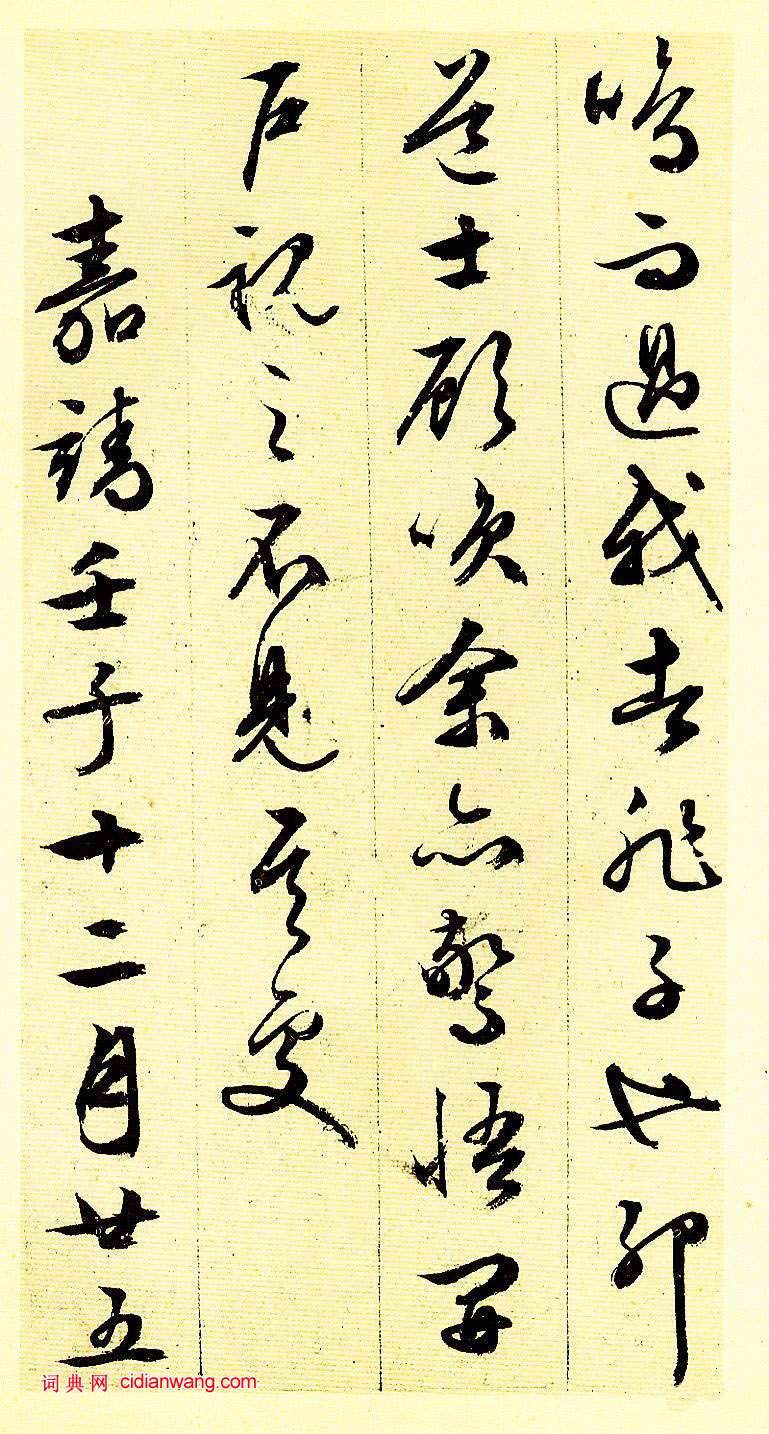 鳴而過我者非子也耶
道士顧咲余亦驚悟開
户視之不見其處
嘉靖壬子十二月廿五
词典网 cidianwang.com